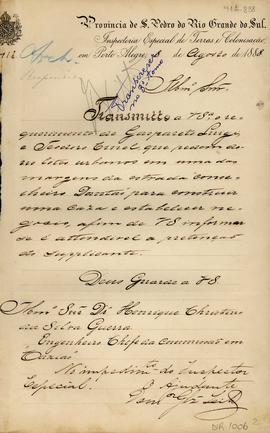 912-888
Provincia de S. Pedro do Rio Grande do Sul.
Inspectoria Especial de Terras e Colonisação
em Porto Alegre, de Agosto de 1888
Illmo Snr.
Transmitto a VSª o re
querimento de Gasparete Luigi
e Tesdoro Curel que pedem do
us lotes urbanos em uma das
margens da estrada conse
lheiro Dantas, para construir
uma caza e estabelecer ne
gocio, afim de VS informar
se é attendivel a pretenção
do supplicante.
Deus Guarde a VS
Illmo Snr Dr Henrique Christino
da Silva Guerra
Engenheiro Chefe da Commissão em
Caxias
No impedimto do Inspector
Especial.
O Ajudante
DIR.1006